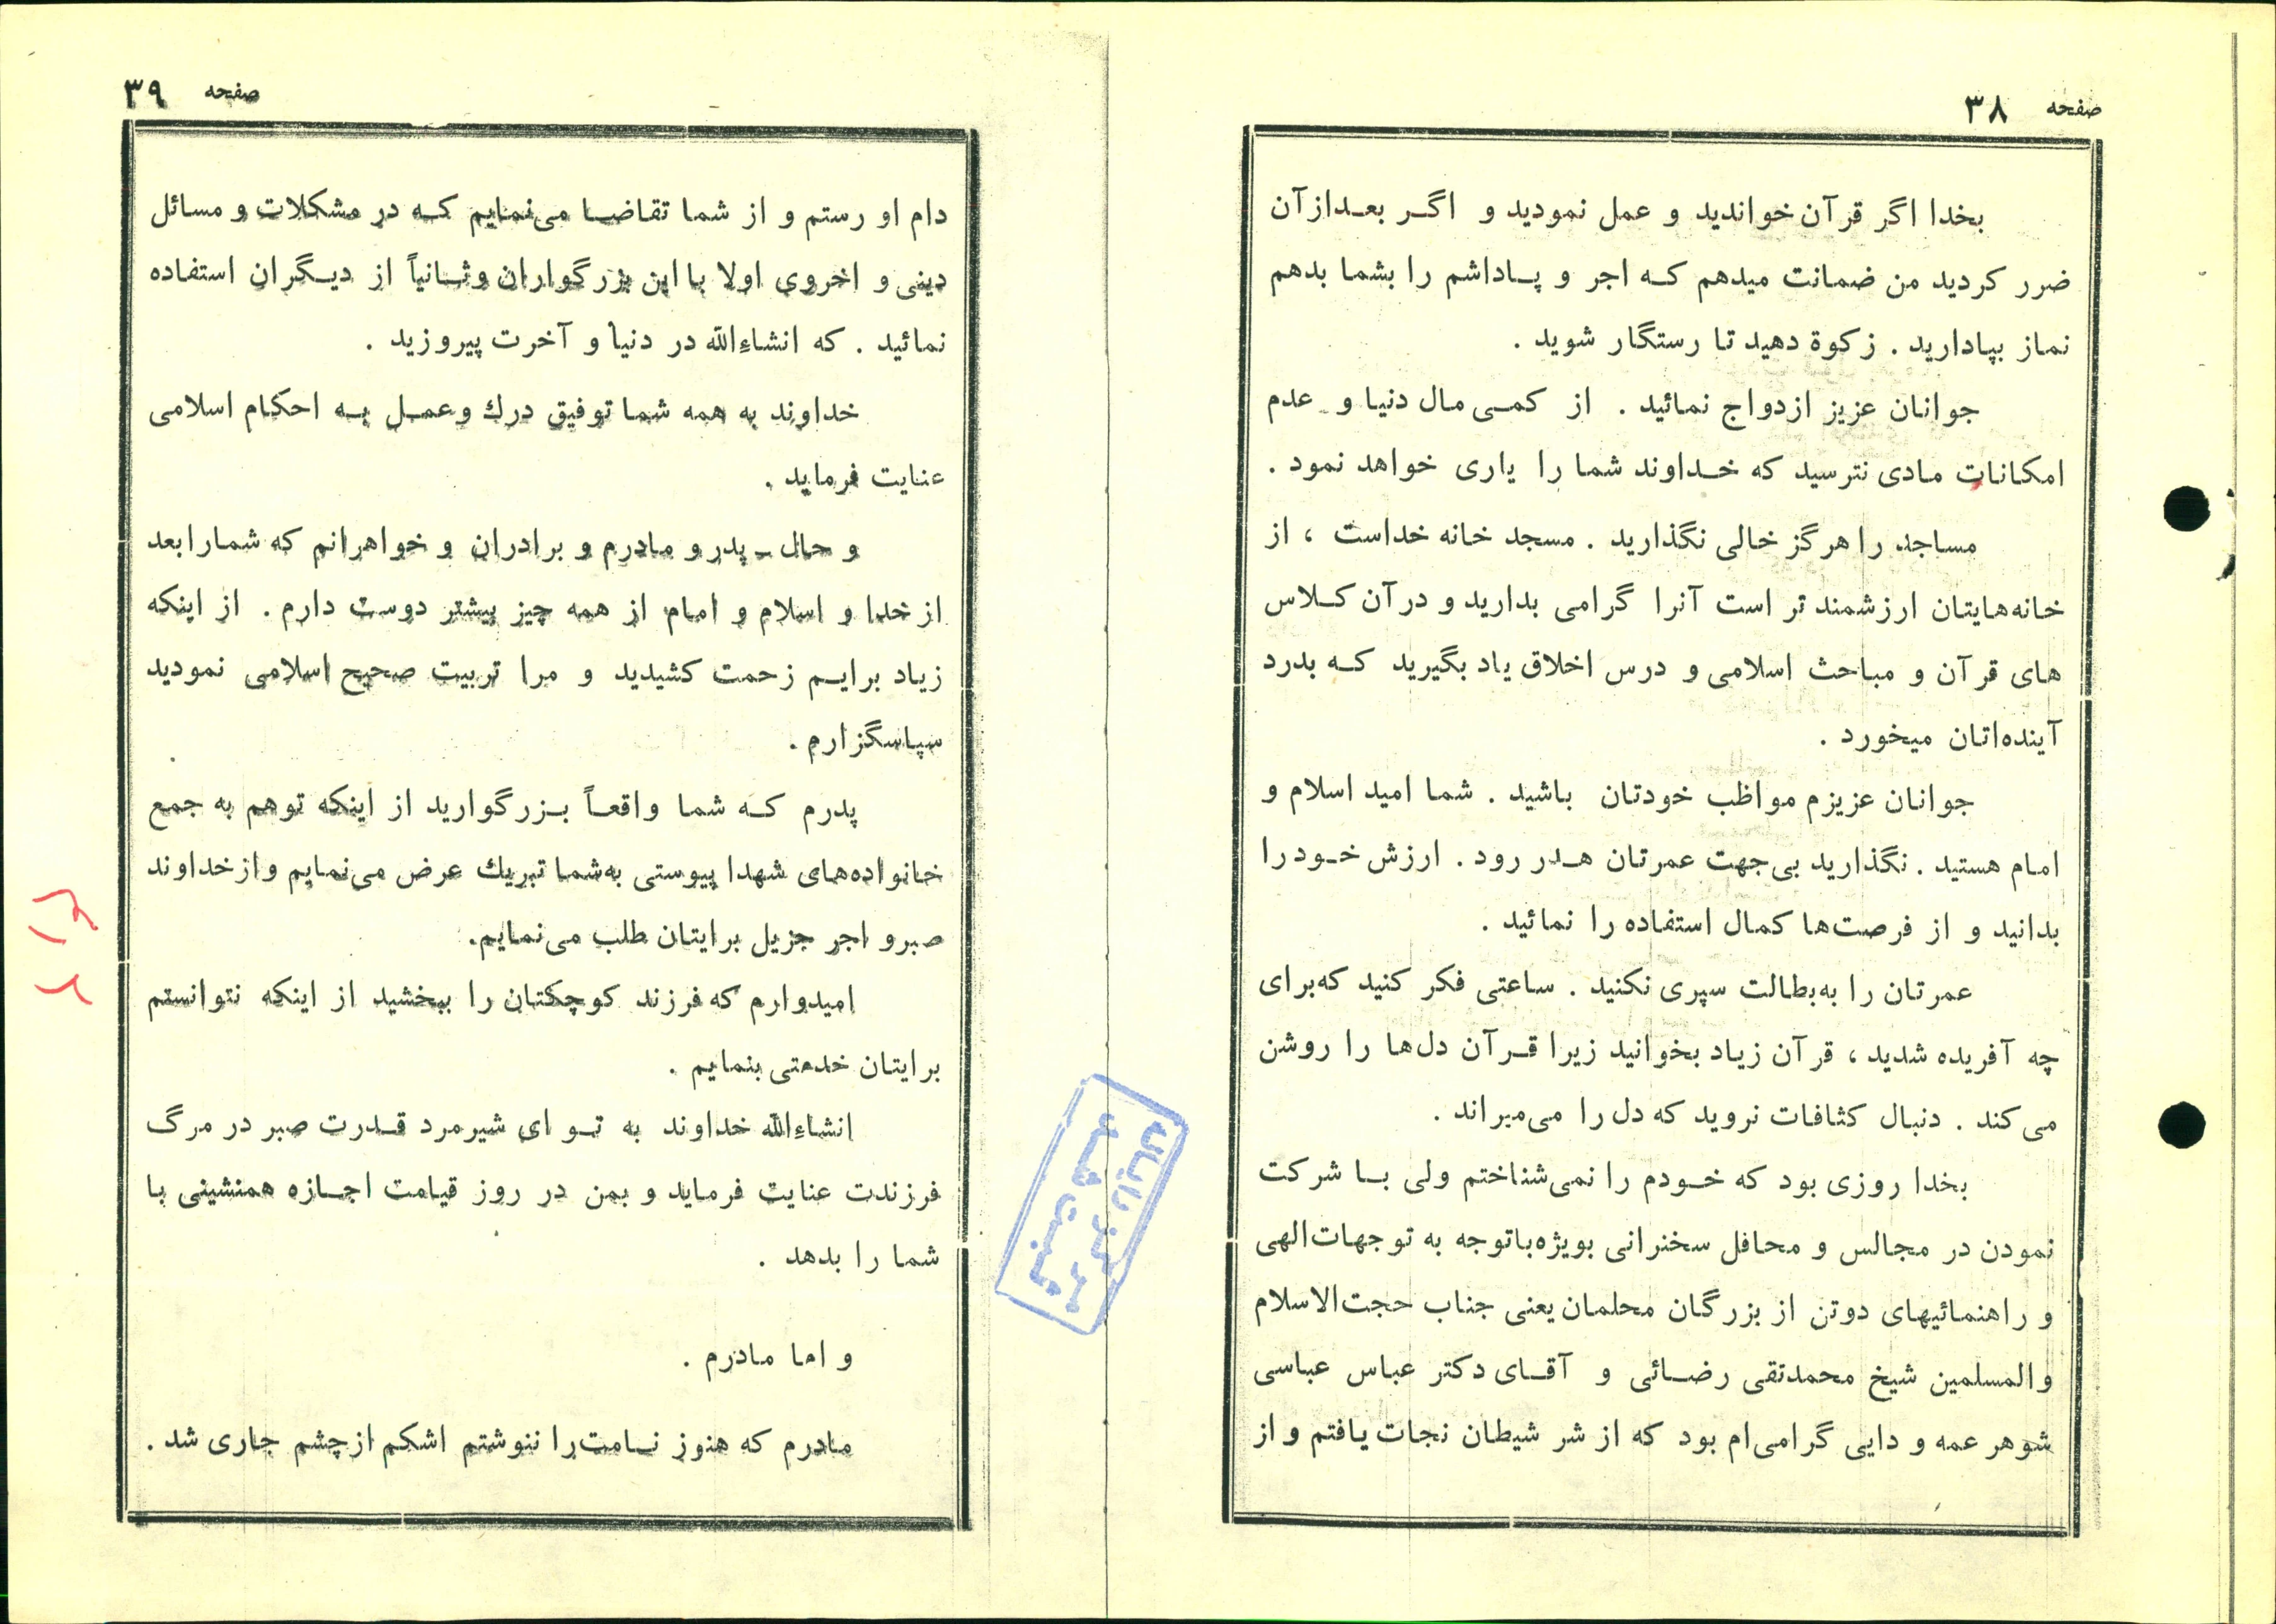 صفحه ۳۸
بخدا اگر قرآن خواندید و عمل نمودید و اگر بعدازآن
ضرر کردید من ضمانت میدهم که اجر و پاداشم را بشما بدهم
نماز بپادارید . زکوة دهید تا رستگار شوید .
جوانان عزیز ازدواج نمائید . از کمی مال دنیا و عدم
امکانات مادی نترسید که خداوند شما را یاری خواهد نمود .
مساجد را هرگز خالی نگذارید . مسجد خانه خداست ، از
خانه‌هایتان ارزشمند تر است آنرا گرامی بدارید و درآن کلاس
های قرآن و مباحث اسلامی و درس اخلاق یاد بگیرید که بدرد
آینده‌اتان میخورد .
جوانان عزیزم مواظب خودتان باشید . شما امید اسلام و
امام هستید . نگذارید بی‌جهت عمرتان هدر رود . ارزش خود را
بدانید و از فرصت‌ها کمال استفاده را نمائید .
عمرتان را به‌بطالت سپری نکنید . ساعتی فکر کنید که‌برای
چه آفریده شدید ، قرآن زیاد بخوانید زیرا قرآن دل‌ها را روشن
می‌کند . دنبال کثافات نروید که دل را می‌میراند .
بخدا روزی بود که خودم را نمی‌شناختم ولی با شرکت
نمودن در مجالس و محافل سخنرانی بویژه‌باتوجه به توجهات‌الهی
و راهنمائیهای دوتن از بزرگان محلمان یعنی جناب حجت‌الاسلام
والمسلمین شیخ محمدتقی رضائی و آقای دکتر عباس عباسی
شوهر عمه و دایی گرامی‌ام بود که از شر شیطان نجات یافتم و از
صفحه ۳۹
دام او رستم و از شما تقاضا می‌نمایم که در مشکلات و مسائل
دینی و اخروی اولا با این بزرگواران وثانیاً از دیگران استفاده
نمائید . که انشاءالله در دنیا و آخرت پیروزید .
خداوند به همه شما توفیق درك وعمل به احکام اسلامی
عنایت فرماید .
و حال ـ پدر و مادرم و برادران و خواهرانم که شمارا بعد
از خدا و اسلام و امام از همه چیز بیشتر دوست دارم . از اینکه
زیاد برایم زحمت کشیدید و مرا تربیت صحیح اسلامی نمودید
سپاسگزارم .
پدرم که شما واقعاً بزرگوارید از اینکه توهم به جمع
خانواده‌های شهدا پیوستی به‌شما تبریك عرض می‌نمایم و از خداوند
صبرو اجر جزیل برایتان طلب می‌نمایم.
امیدوارم که فرزند کوچکتان را ببخشید از اینکه نتوانستم
برایتان خدمتی بنمایم .
انشاءالله خداوند به تو ای شیرمرد قدرت صبر در مرگ
فرزندت عنایت فرماید و بمن در روز قیامت اجازه همنشینی با
شما را بدهد .
و اما مادرم .
مادرم که هنوز نامت‌را ننوشتم اشکم ازچشم جاری شد .